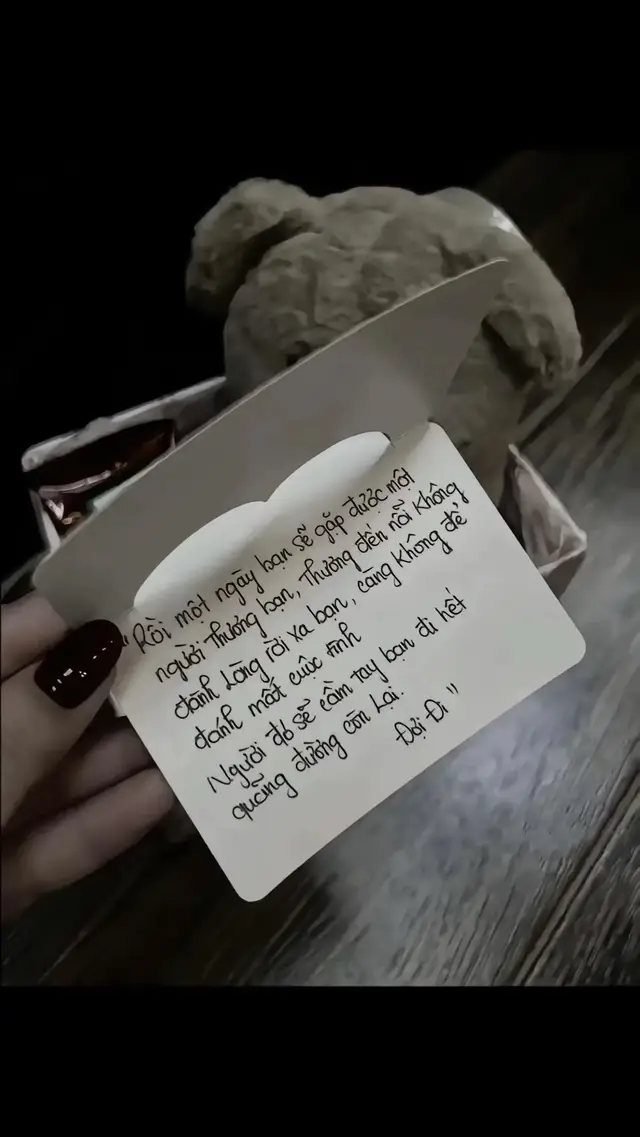 "Rồi một ngày bạn sẽ gặp được một
người thương bạn, Thương đến nỗi không
đành lòng rời xa bạn, càng không để
đánh mất cuộc tình
Người đó sẽ cầm tay bạn đi hết
quãng đường còn lại.
Đợi Đi"